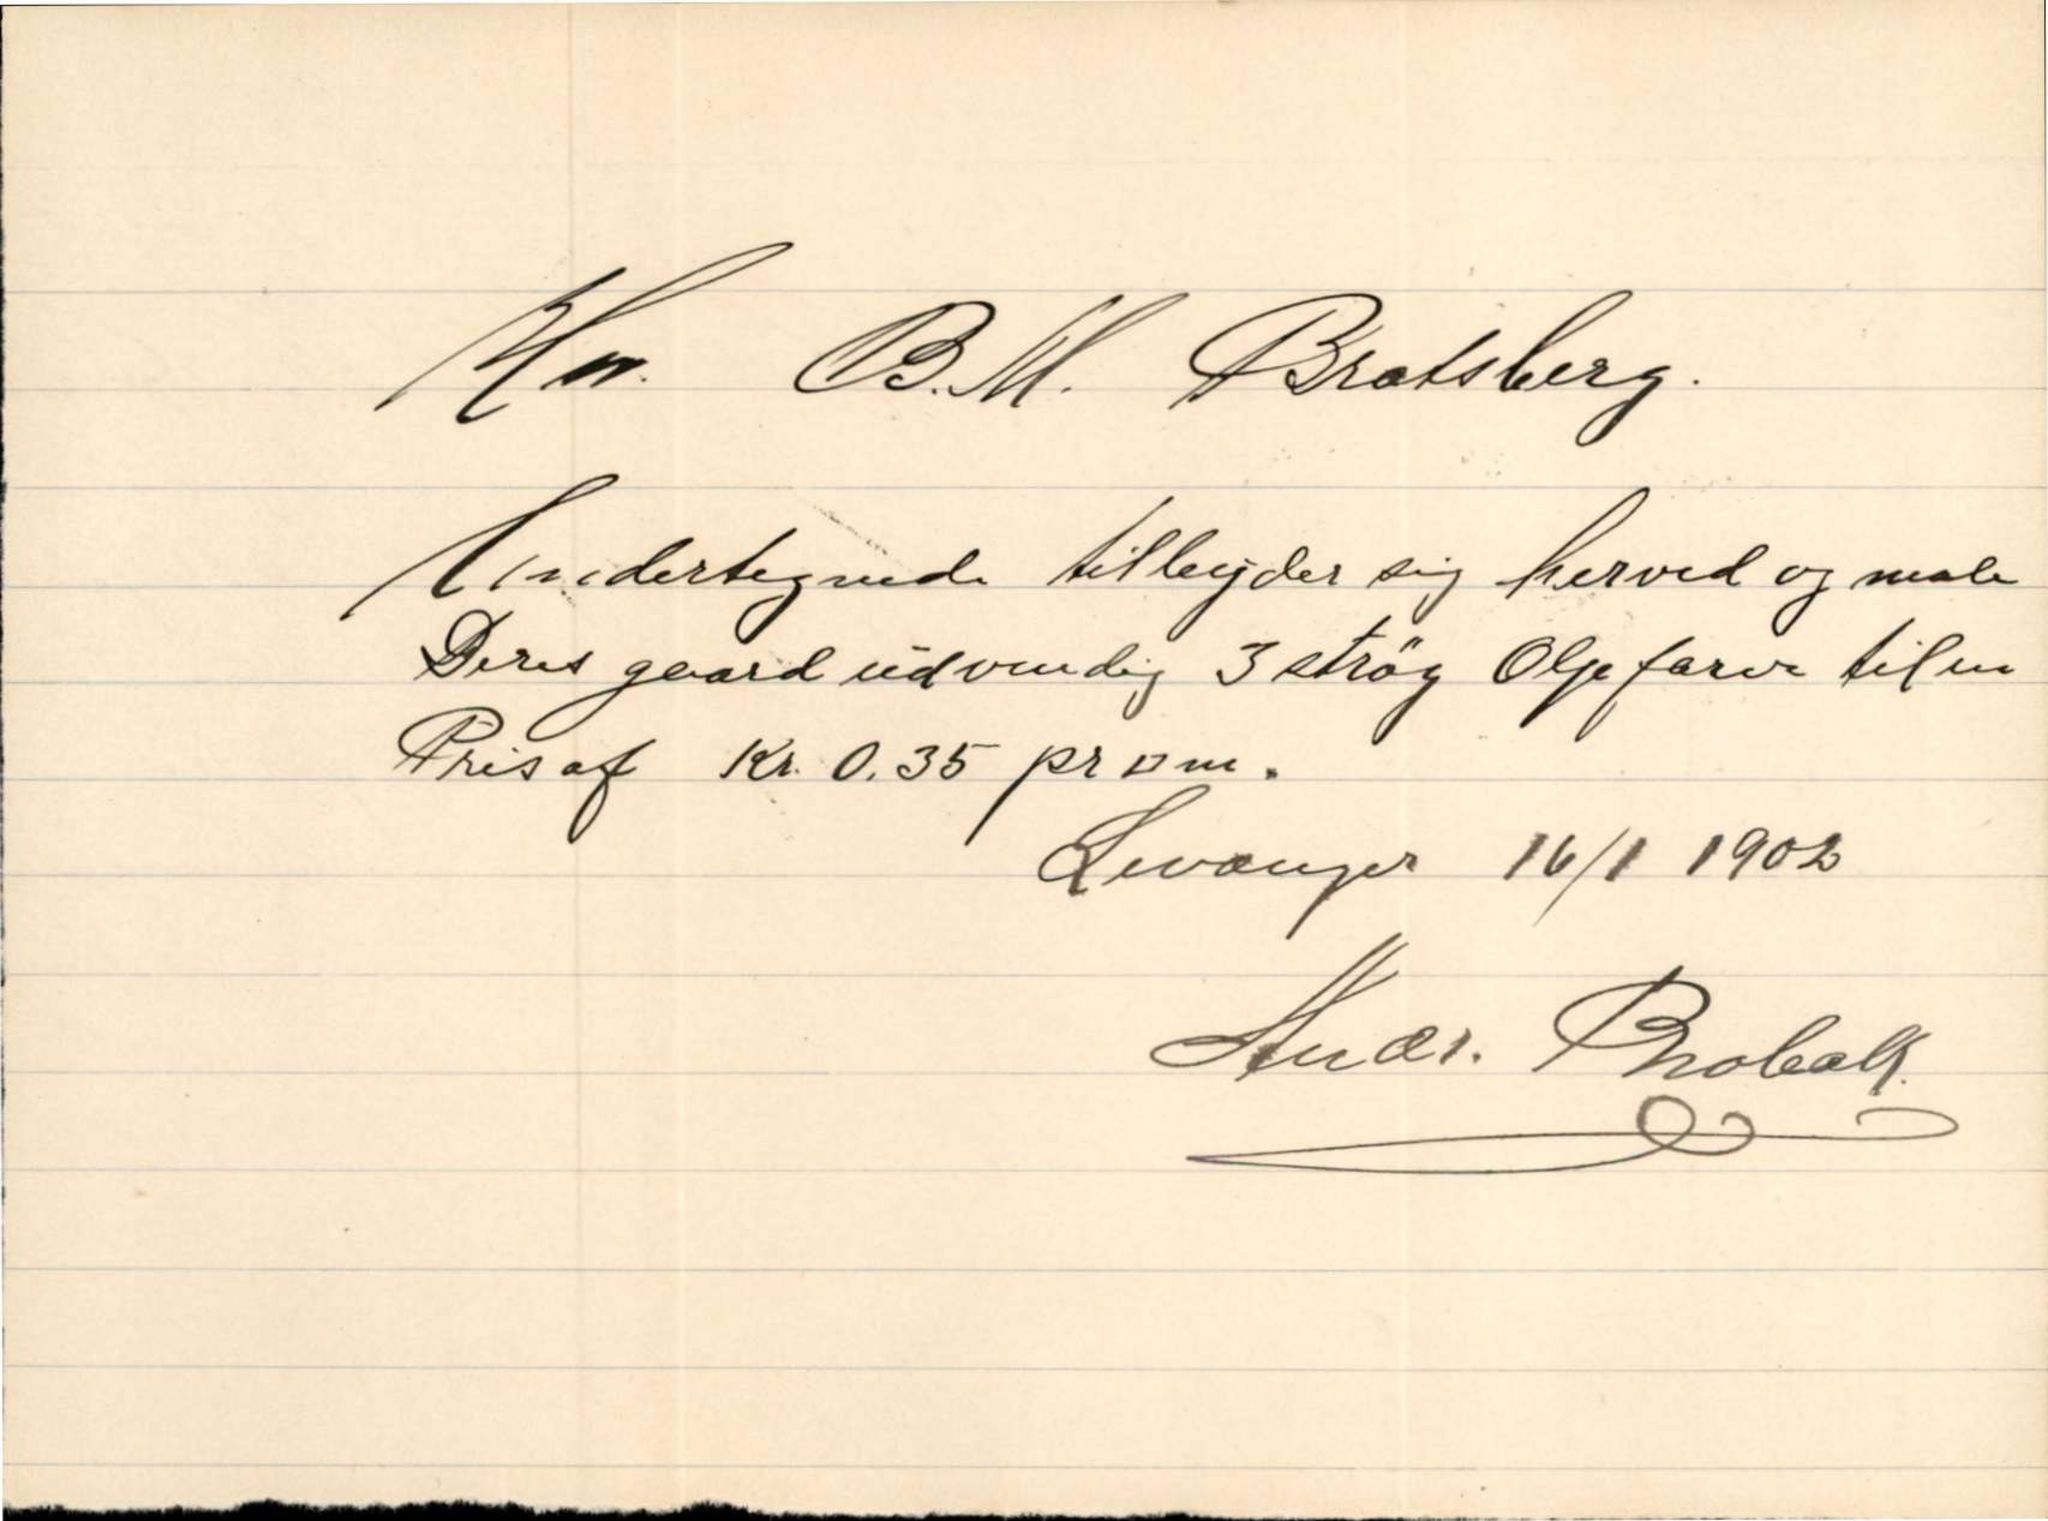 Hr. B. M. Bratsberg.
Undertegnede tilbeyder sig herved og male
Deres gaard udvendig 3 strög Oljefarve til en
Pris af Kr. 0.35 pr □ m.
Levanger 16/1 1902
Andr.